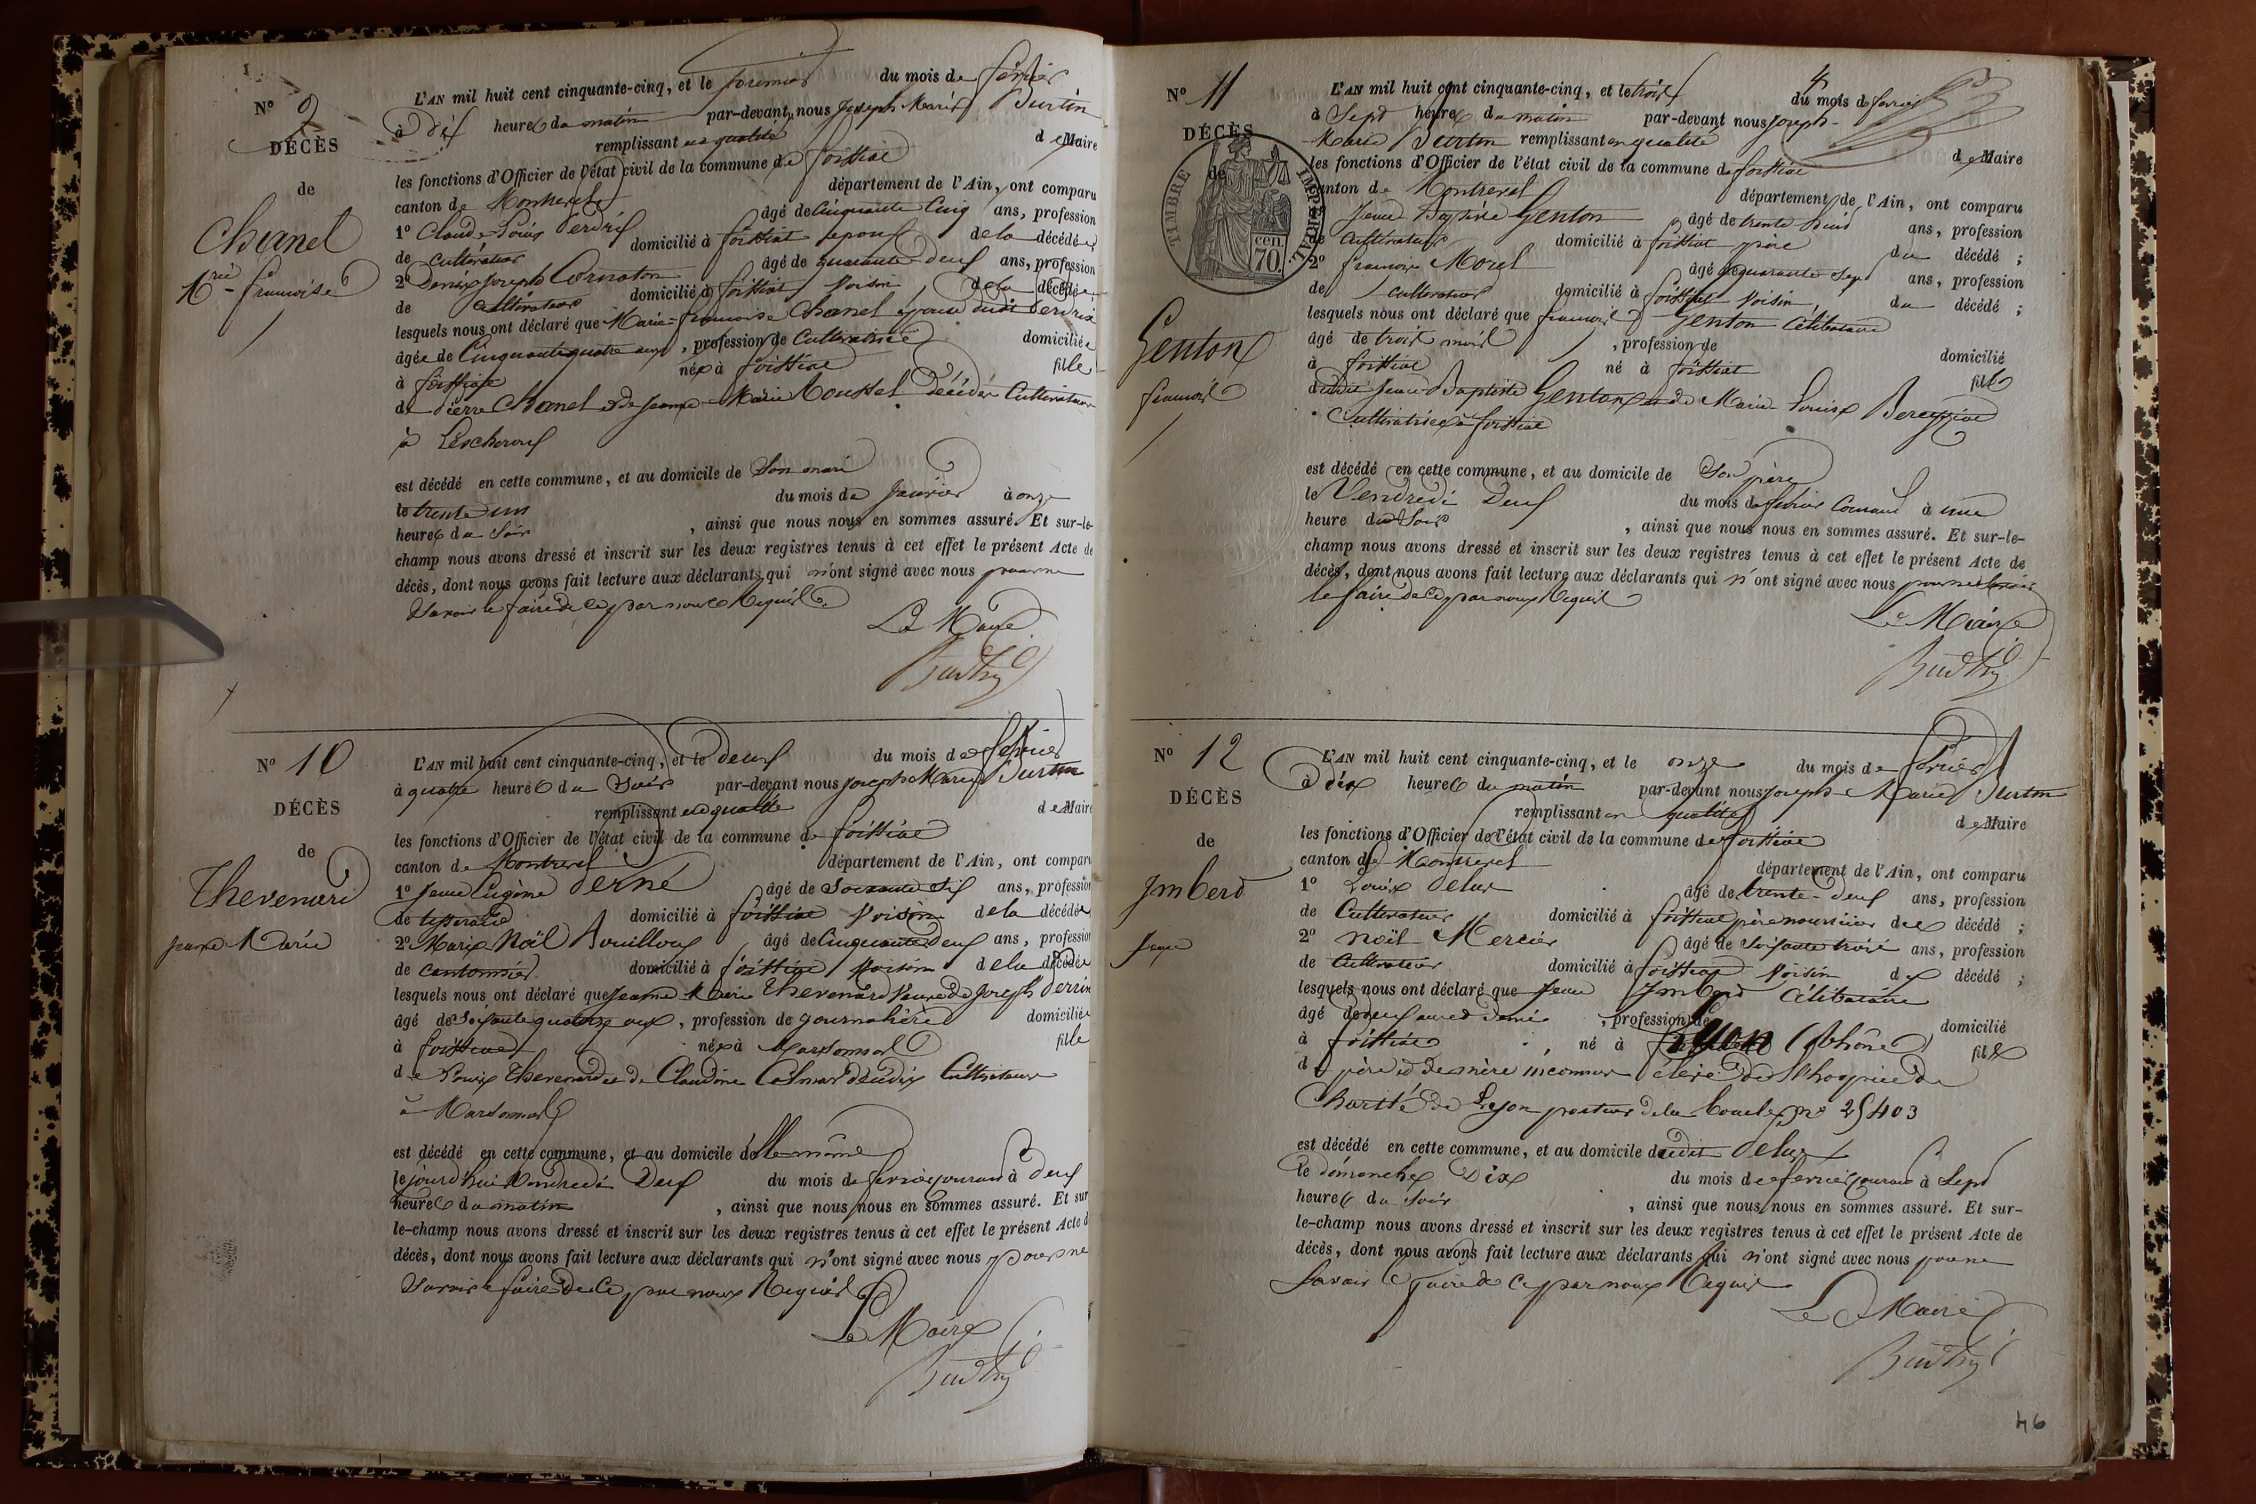 N° 9
DÉCÈS
de
Chanel
Mrie françoise
L'AN mil huit cent cinquante-cinq, et le premier du mois de février
à Dix heures du matin par-devant nous Joseph Marie Burtin
remplissant en qualité de Maire
les fonctions d'Officier de l'état civil de la commune de foissiat
canton de Montrevel département de l'Ain, ont comparu
1° Claude Louis Perdrix âgé de Cinquante Cinq ans, profession
de cultivateur domicilié à foissiat epoux de la décédée
2° Denis Joseph Cornaton âgé de quarante deux ans, profession
de cultivateur domicilié à foissiat Voisin de la décédée
lesquels nous ont déclaré que Marie françoise Chanel épouse dudit Perdrix
âgée de Cinquante quatre ans, profession de Cultivatrice domiciliée
à foissiat née à foissiat fille
de Pierre Chanel et de Jeanne Marie Moussel Décédés Cultivateurs
à Lescheroux
est décédé en cette commune, et au domicile de Son mari
le trente un du mois de janvier à onze
heures du soir, ainsi que nous nous en sommes assuré. Et sur-le-
champ nous avons dressé et inscrit sur les deux registres tenus à cet effet le présent Acte de
décès, dont nous avons fait lecture aux déclarants qui n'ont signé avec nous pour ne
Savoir le faire de ce par nous Requis
Le Maire
Burtin
N° 10
DÉCÈS
de
Thevenard
jeanne Marie
L'AN mil huit cent cinquante-cinq, et le deux du mois de février
à quatre heures du Soir par-devant nous joseph Marie Burtin
remplissant en qualité de Maire
les fonctions d'Officier de l'état civil de la commune de foissiat
canton de Montrevel département de l'Ain, ont comparu
1° Jean Eugène Perné âgé de Soixante Six ans, profession
de tisserand domicilié à foissiat Voisin de la décédée
2° Marie Noël Bouilloux âgé de Cinquante Deux ans, profession
de cantonnier domicilié à foissiat Voisin de la décédée
lesquels nous ont déclaré que Jeanne Marie Thevenard Veuve de Joseph Perrin
âgé de Soixante quatorze ans, profession de journalière domiciliée
à foissiat née à Marsonnas fille
de Louis Thevenard et de Claudine Colmar décédés Cultivateurs
à Marsonnas
est décédé en cette commune, et au domicile d'elle même
le jourd'hui Vendredi Deux du mois de février courant à deux
heures du matin, ainsi que nous nous en sommes assuré. Et sur
le-champ nous avons dressé et inscrit sur les deux registres tenus à cet effet le présent Acte d
décès, dont nous avons fait lecture aux déclarants qui n'ont signé avec nous pour ne
Savoir le faire de ce par nous Requis
Le Maire
Burtin
N° 11
DÉCÈS
de
TIMBRE IMPÉRIAL
cen. 70.
Genton
françois
L'AN mil huit cent cinquante-cinq, et le trois du mois de février
à Sept heures du matin par-devant nous joseph-
Marie Burtin remplissant en qualité de Maire
les fonctions d'Officier de l'état civil de la commune de foissiat
canton de Montrevel département de l'Ain, ont comparu
Jean Baptiste Genton âgé de trente huit ans, profession
de Cultivateur domicilié à foissiat père du décédé ;
2° françois Morel âgé de quarante Sept ans, profession
de cultivateur domicilié à foissiat Voisin, du décédé ;
lesquels nous ont déclaré que françois Genton Célibataire
âgé de trois mois, profession de domicilié
à foissiat né à foissiat fils
dudit Jean-Baptiste Genton et de Marie Louise
Cultivatrice à foissiat
est décédé en cette commune, et au domicile de Son père
le Vendredi Deux du mois de février courant à une
heure du Soir, ainsi que nous nous en sommes assuré. Et sur-le-
champ nous avons dressé et inscrit sur les deux registres tenus à cet effet le présent Acte de
décès, dont nous avons fait lecture aux déclarants qui n'ont signé avec nous pour ne Savoir
le faire de ce par nous Requis
Le Maire
Burtin
N° 12
DÉCÈS
de
Imberd
Jean
L'AN mil huit cent cinquante-cinq, et le onze du mois de février
à dix heures du matin par-devant nous joseph Marie Burtin
remplissant en qualité de Maire
les fonctions d'Officier de l'état civil de la commune de foissiat
canton de Montrevel département de l'Ain, ont comparu
1° Louis Velux âgé de trente-deux ans, profession
de Cultivateur domicilié à foissiat père nourricier du décédé ;
2° Noël Mercier âgé de Soixante trois ans, profession
de Cultivateur domicilié à foissiat Voisin du décédé ;
lesquels nous ont déclaré que Jean Imberd Célibataire
âgé de deux ans et demi, profession de domicilié
à foissiat né à Lyon (Rhône) fils
de père et de mère inconnus élève de l'hospice de
Charité de Lyon porteur de la boucle n° 25403
est décédé en cette commune, et au domicile dudit Velux
le dimanche Dix du mois de février courant à Sept
heures du Soir, ainsi que nous nous en sommes assuré. Et sur-
le-champ nous avons dressé et inscrit sur les deux registres tenus à cet effet le présent Acte de
décès, dont nous avons fait lecture aux déclarants qui n'ont signé avec nous pour ne
Savoir le faire de ce par nous Requis
Le Maire
Burtin
46